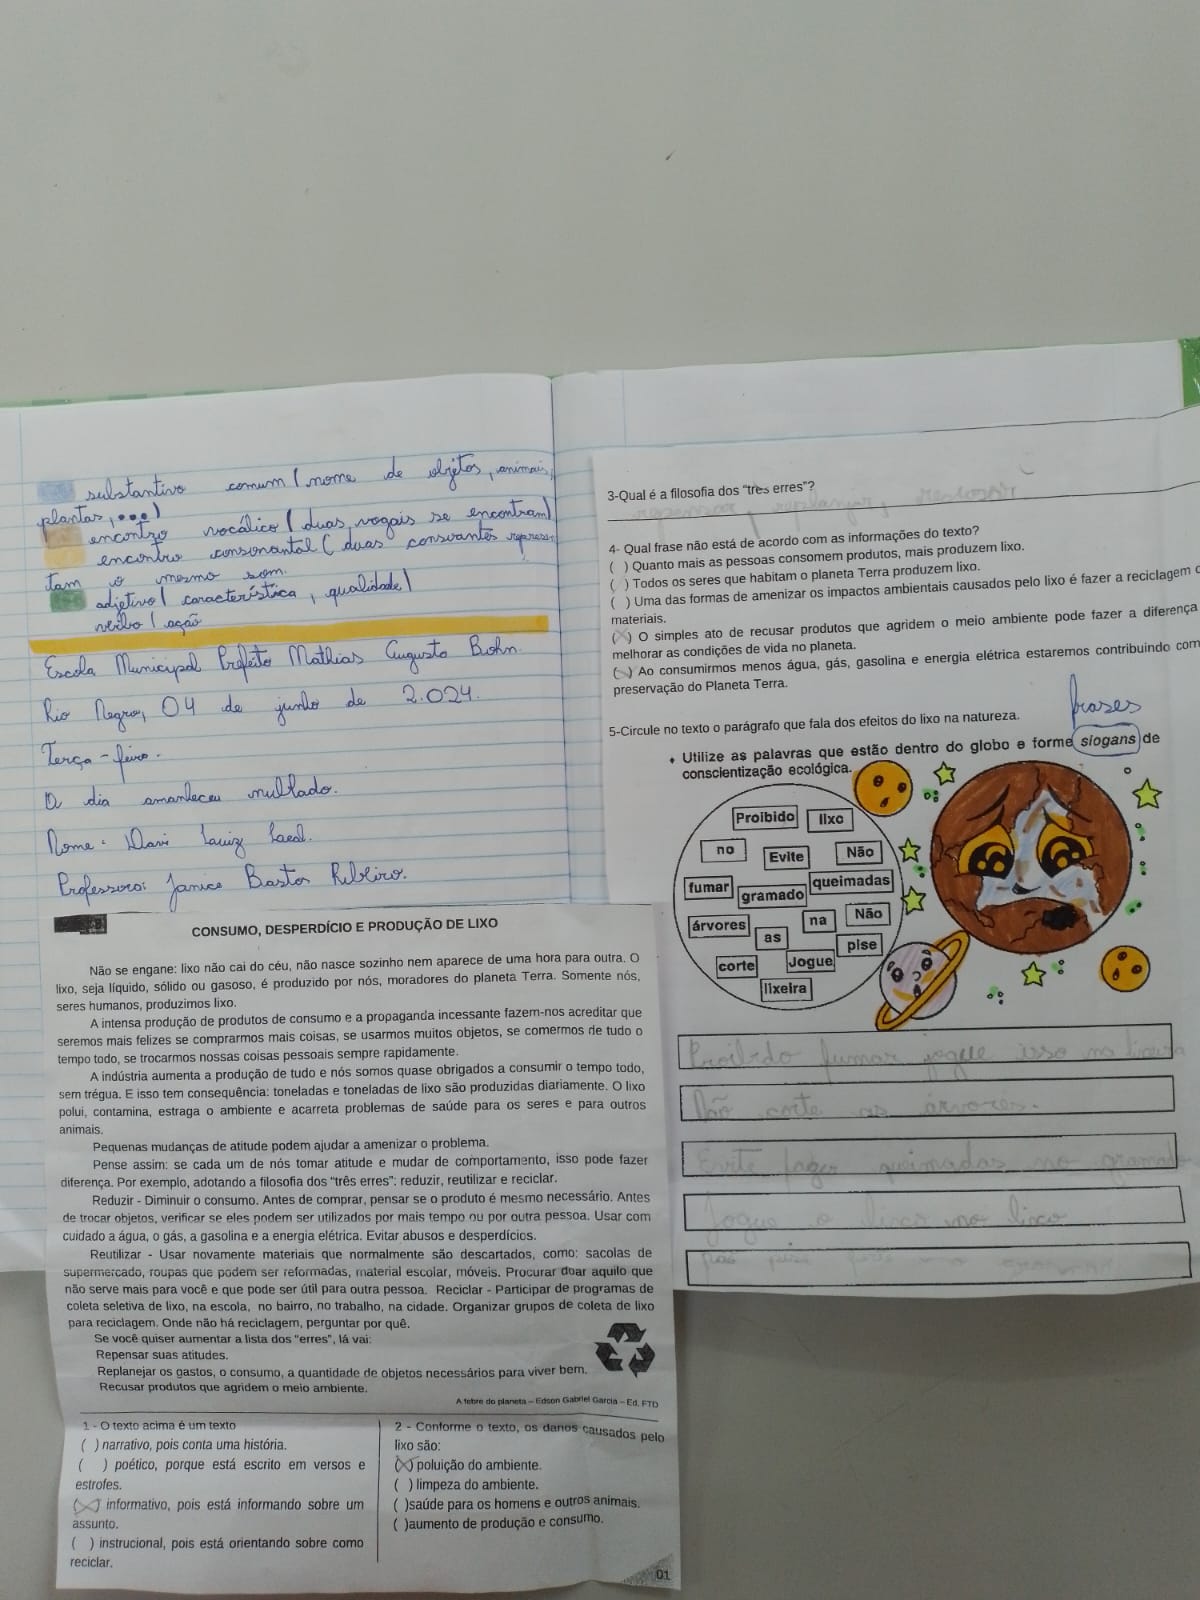 substantivo comum ( nome de objetos, animais,
plantas, ...)
encontro vocálico ( duas vogais se encontram)
encontro consonantal ( duas consoantes represen
tam o mesmo som.
adjetivo ( característica, qualidade)
verbo ( ação
Escola Municipal Prefeito Mathias Augusto Bohn.
Rio Negro, 04 de junho de 2.024.
Terça-feira.
O dia amanheceu nublado.
Nome: Davi Luiz
Professora: Janice Bastos Ribeiro.
CONSUMO, DESPERDÍCIO E PRODUÇÃO DE LIXO
Não se engane: lixo não cai do céu, não nasce sozinho nem aparece de uma hora para outra. O
lixo, seja líquido, sólido ou gasoso, é produzido por nós, moradores do planeta Terra. Somente nós,
seres humanos, produzimos lixo.
A intensa produção de produtos de consumo e a propaganda incessante fazem-nos acreditar que
seremos mais felizes se comprarmos mais coisas, se usarmos muitos objetos, se comermos de tudo o
tempo todo, se trocarmos nossas coisas pessoais sempre rapidamente.
A indústria aumenta a produção de tudo e nós somos quase obrigados a consumir o tempo todo,
sem trégua. E isso tem consequência: toneladas e toneladas de lixo são produzidas diariamente. O lixo
polui, contamina, estraga o ambiente e acarreta problemas de saúde para os seres e para outros
animais.
Pequenas mudanças de atitude podem ajudar a amenizar o problema.
Pense assim: se cada um de nós tomar atitude e mudar de comportamento, isso pode fazer
diferença. Por exemplo, adotando a filosofia dos "três erres": reduzir, reutilizar e reciclar.
Reduzir - Diminuir o consumo. Antes de comprar, pensar se o produto é mesmo necessário. Antes
de trocar objetos, verificar se eles podem ser utilizados por mais tempo ou por outra pessoa. Usar com
cuidado a água, o gás, a gasolina e a energia elétrica. Evitar abusos e desperdícios.
Reutilizar - Usar novamente materiais que normalmente são descartados, como: sacolas de
supermercado, roupas que podem ser reformadas, material escolar, móveis. Procurar doar aquilo que
não serve mais para você e que pode ser útil para outra pessoa. Reciclar - Participar de programas de
coleta seletiva de lixo, na escola, no bairro, no trabalho, na cidade. Organizar grupos de coleta de lixo
para reciclagem. Onde não há reciclagem, perguntar por quê.
Se você quiser aumentar a lista dos "erres", lá vai:
Repensar suas atitudes.
Replanejar os gastos, o consumo, a quantidade de objetos necessários para viver bem.
Recusar produtos que agridem o meio ambiente.
A febre do planeta – Edson Gabriel Garcia – Ed. FTD
1 - O texto acima é um texto
( ) narrativo, pois conta uma história.
( ) poético, porque está escrito em versos e
estrofes.
(X) informativo, pois está informando sobre um
assunto.
( ) instrucional, pois está orientando sobre como
reciclar.
2 - Conforme o texto, os danos causados pelo
lixo são:
(X) poluição do ambiente.
( ) limpeza do ambiente.
( )saúde para os homens e outros animais.
( )aumento de produção e consumo.
01
3-Qual é a filosofia dos "três erres"?
4- Qual frase não está de acordo com as informações do texto?
( ) Quanto mais as pessoas consomem produtos, mais produzem lixo.
( ) Todos os seres que habitam o planeta Terra produzem lixo.
( ) Uma das formas de amenizar os impactos ambientais causados pelo lixo é fazer a reciclagem
materiais.
(X) O simples ato de recusar produtos que agridem o meio ambiente pode fazer a diferença
melhorar as condições de vida no planeta.
( ) Ao consumirmos menos água, gás, gasolina e energia elétrica estaremos contribuindo com
preservação do Planeta Terra.
5-Circule no texto o parágrafo que fala dos efeitos do lixo na natureza.
frases
• Utilize as palavras que estão dentro do globo e forme slogans de
conscientização ecológica.
Proibido lixo
no Evite Não
fumar gramado queimadas
árvores na Não
as pise
corte Jogue
lixeira
Proibido fumar jogue isso na lixeira
Não corte as árvores.
Evite fazer queimadas no gramado
Jogue o lixo no lixo